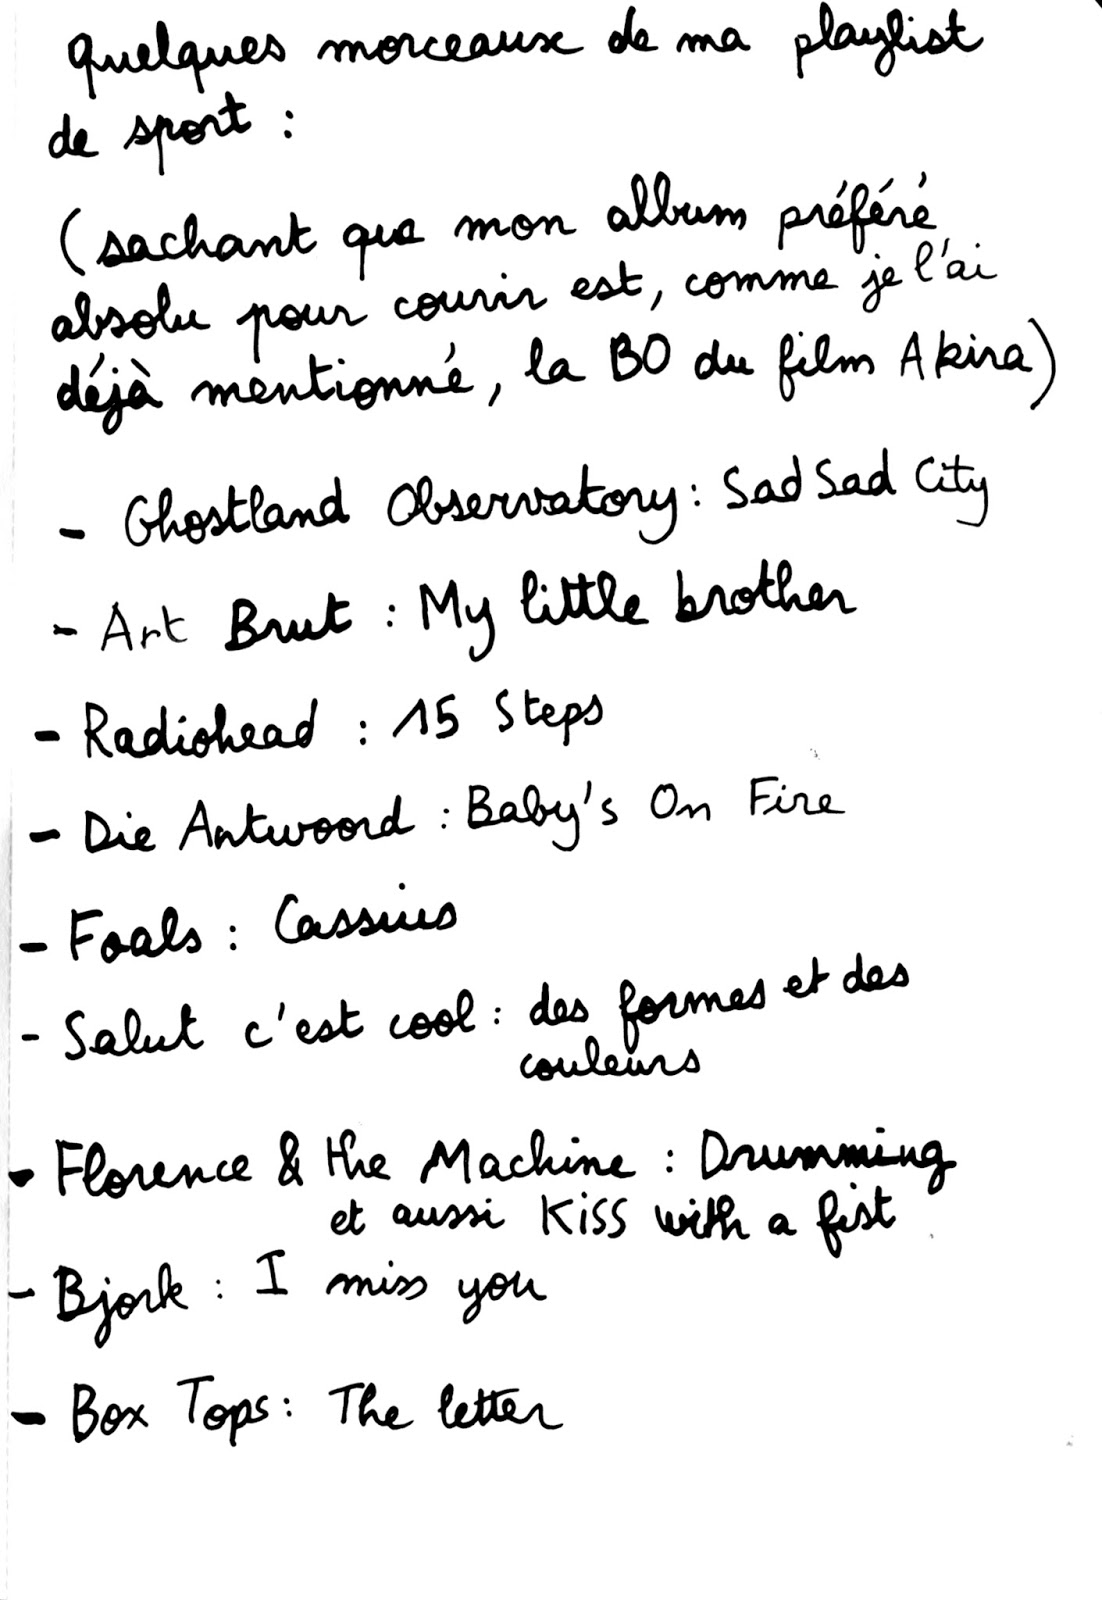 Quelques morceaux de ma playlist
de sport :
(sachant que mon album préféré
absolu pour courir est, comme je l'ai
déjà mentionné, la BO du film Akira)
- Ghostland Observatory : Sad Sad City
- Art Brut : My little brother
- Radiohead : 15 Steps
- Die Antwoord : Baby's On Fire
- Foals : Cassius
- Salut c'est cool : des formes et des
couleurs
- Florence & the Machine : Drumming
et aussi Kiss with a fist
- Bjork : I miss you
- Box Tops : The letter